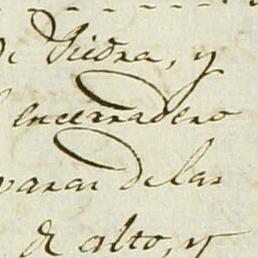 de Piedra, y
encerradero
varas de las
de alto, y